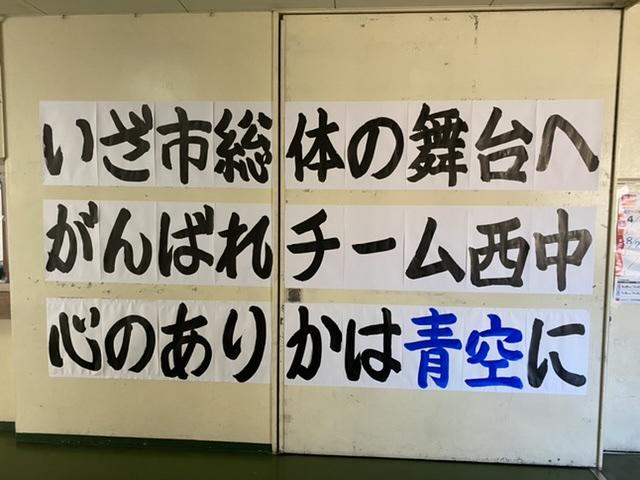 いざ市総体の舞台へ
がんばれチーム西中
心のありかは青空に